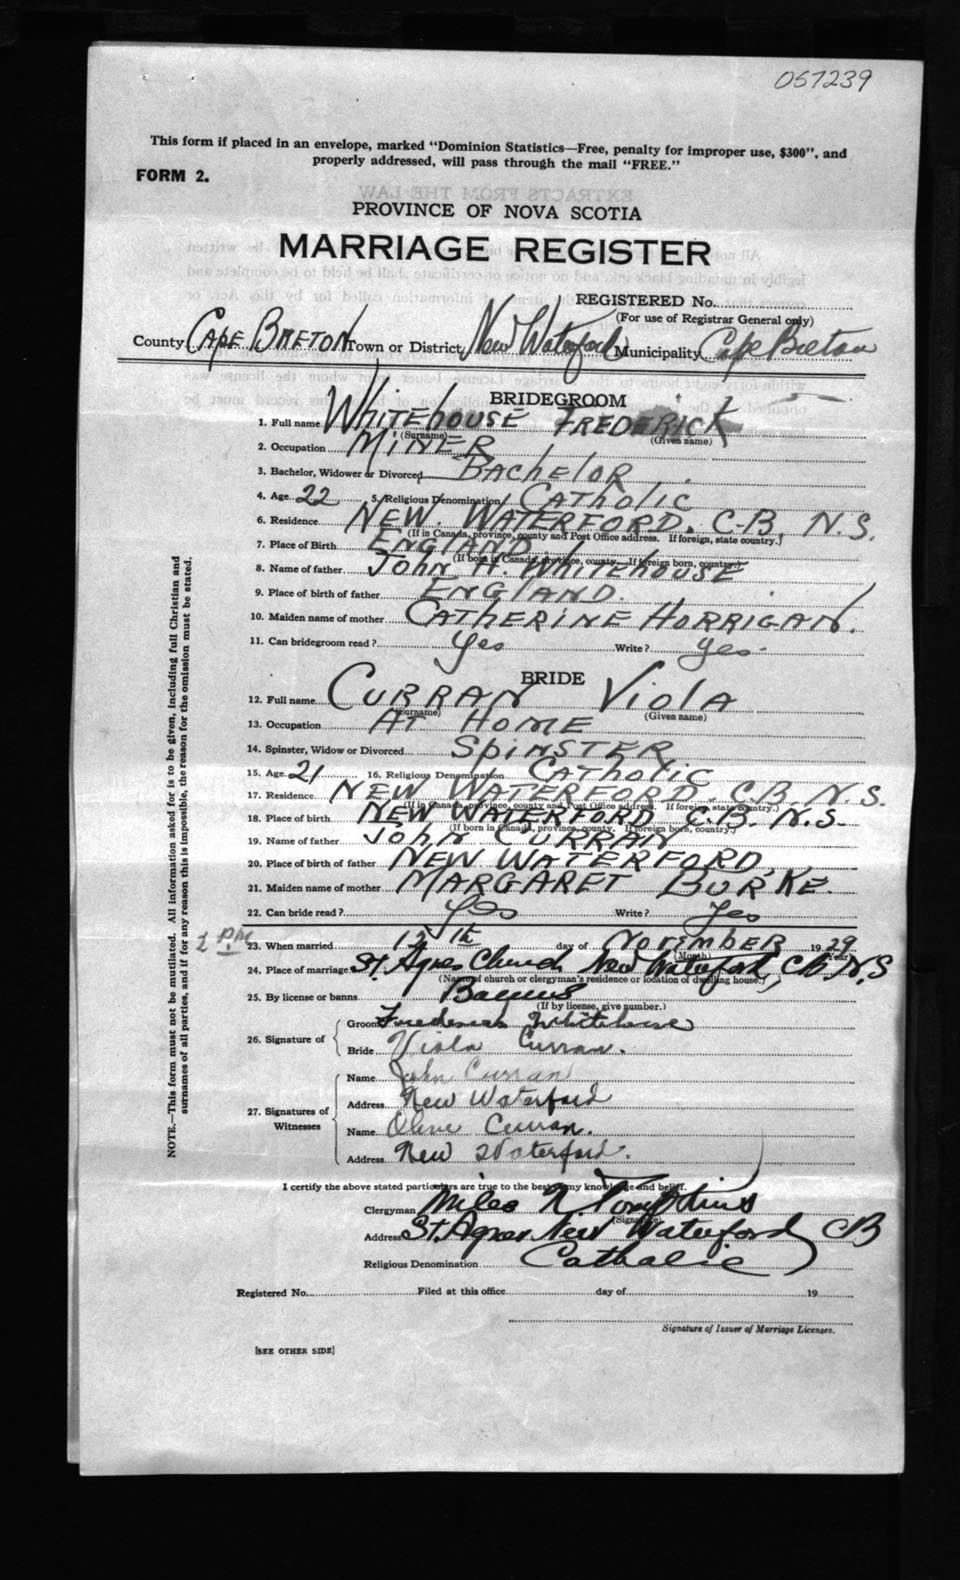 057239
This form if placed in an envelope, marked "Dominion Statistics—Free, penalty for improper use, $300", and
properly addressed, will pass through the mail "FREE."
FORM 2.
PROVINCE OF NOVA SCOTIA
MARRIAGE REGISTER
REGISTERED No.
(For use of Registrar General only)
County Cape Breton Town or District New Waterford Municipality Cape Breton
BRIDEGROOM
1. Full name Whitehouse Frederick
(Surname) (Given name)
2. Occupation Miner
3. Bachelor, Widower or Divorced Bachelor
4. Age 22 5. Religious Denomination Catholic
6. Residence New Waterford. C.B. N.S.
(If in Canada, province, county and Post Office address. If foreign, state country.)
7. Place of Birth England
(If born in Canada, province, county. If foreign born, country.)
8. Name of father John H. Whitehouse
9. Place of birth of father England.
10. Maiden name of mother Catherine Horrigan.
11. Can bridegroom read? Yes Write? yes.
BRIDE
12. Full name Curran Viola
(Surname) (Given name)
13. Occupation At Home
14. Spinster, Widow or Divorced Spinster
15. Age 21 16. Religious Denomination Catholic
17. Residence New Waterford. C.B. N.S.
(If in Canada, province, county and Post Office address. If foreign, state country.)
18. Place of birth New Waterford C.B. N.S.
(If born in Canada, province, county. If foreign born, country.)
19. Name of father John Curran
20. Place of birth of father New Waterford
21. Maiden name of mother Margaret Burke.
22. Can bride read? Yes Write? Yes
PM
23. When married day of November 1929
(Month) (Year)
24. Place of marriage St. Agnes Church New Waterford, C.B. N.S
(Name of church or clergyman's residence or location of dwelling house.)
25. By license or banns
(If by license, give number.)
26. Signature of
Groom Frederick Whitehouse
Bride Viola Curran.
27. Signatures of Witnesses
Name John Curran
Address New Waterford
Name Curran.
Address New Waterford.
I certify the above stated particulars are true to the best of my knowledge and belief.
Clergyman Miles N. Tompkins
(Signature)
Address St. Agnes New Waterford CB
Religious Denomination Catholic
Registered No. Filed at this office day of 19
Signature of Issuer of Marriage Licenses.
[SEE OTHER SIDE]
NOTE.—This form must not be mutilated. All information asked for is to be given, including full Christian and
surnames of all parties, and if for any reason this is impossible, the reason for the omission must be stated.